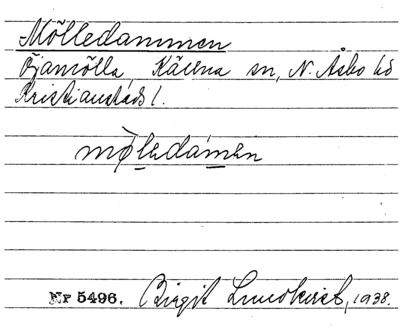 Mölledammen
Öjamölla, Källna sn, N. Åsbo hd
Kristianstads l.
mø̀ledámen
Nr 5496. Birgit Lundkvist, 1938.